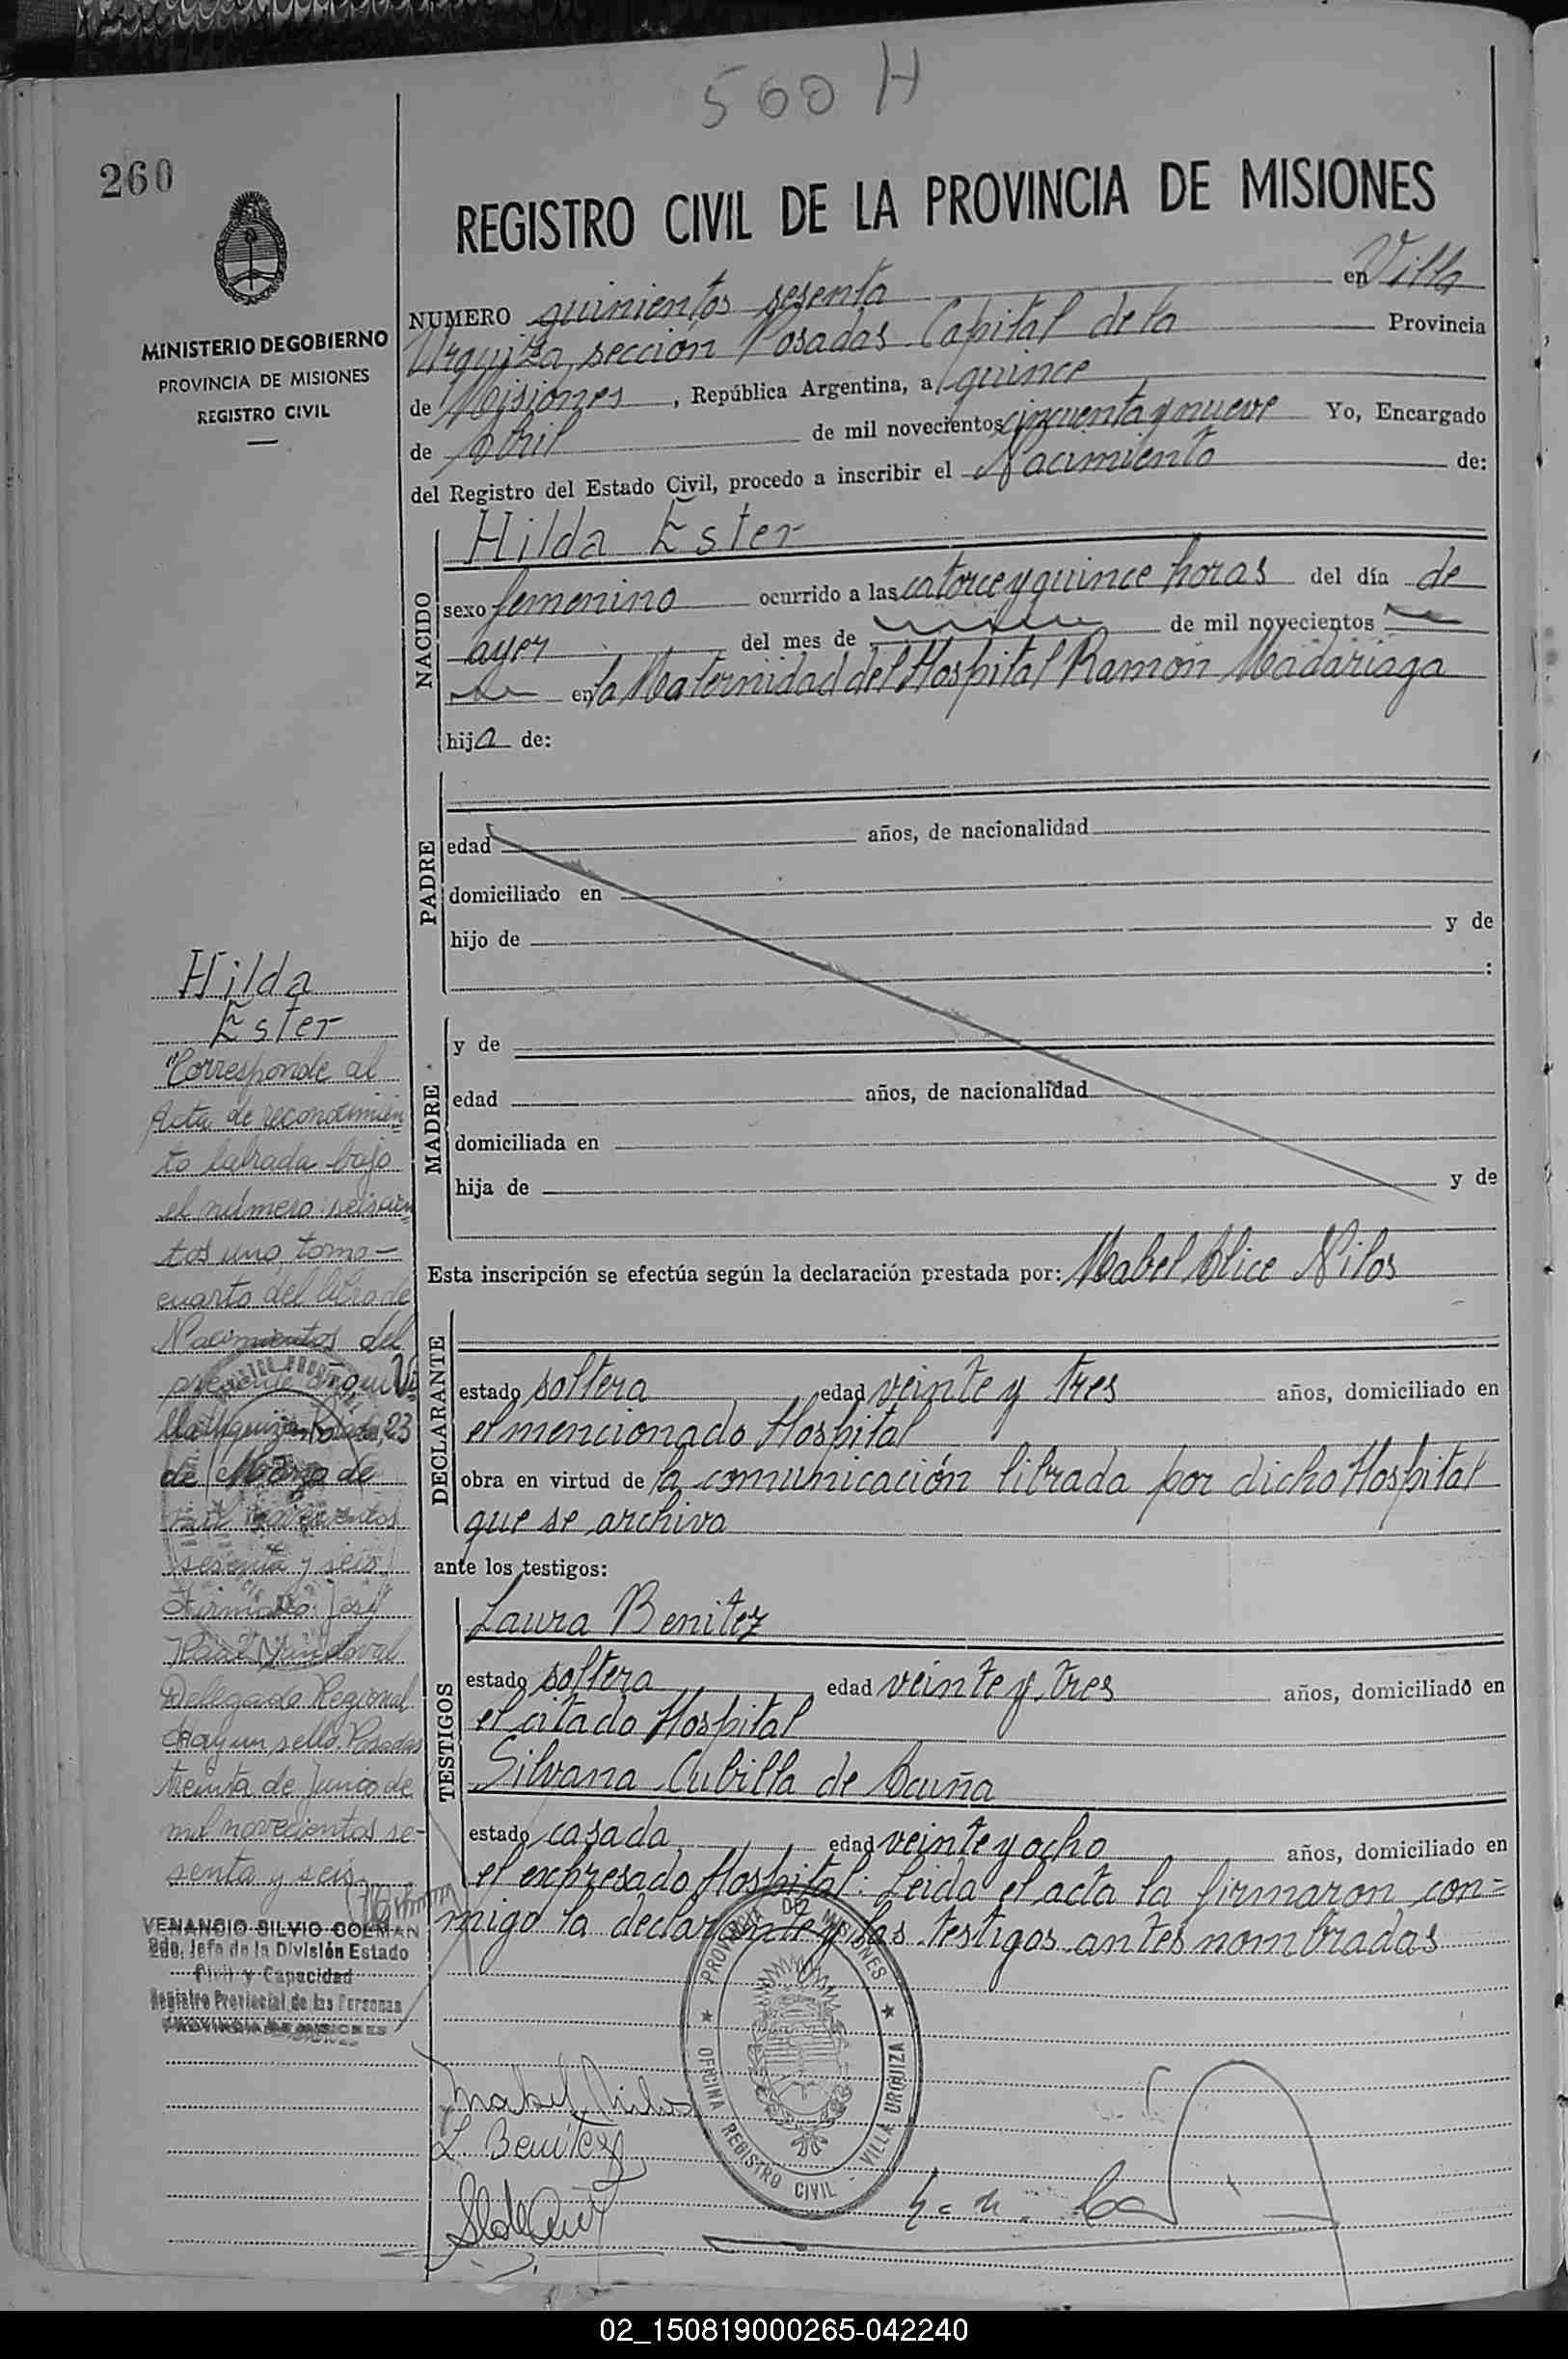 560 H
260
REGISTRO CIVIL DE LA PROVINCIA DE MISIONES
MINISTERIO DE GOBIERNO
PROVINCIA DE MISIONES
REGISTRO CIVIL
NUMERO quinientos sesenta en Villa
Urquiza, sección Posadas Capital de la Provincia
de Misiones, República Argentina, a quince
de Abril de mil novecientos cincuenta y nueve Yo, Encargado
del Registro del Estado Civil, procedo a inscribir el Nacimiento de:
NACIDO
Hilda Ester
sexo femenino ocurrido a las catorce y quince horas del día de
ayer del mes de de mil novecientos
en la Maternidad del Hospital Ramón Madariaga
hija de:
PADRE
edad años, de nacionalidad
domiciliado en
hijo de y de
:
MADRE
y de
edad años, de nacionalidad
domiciliada en
hija de y de
Esta inscripción se efectúa según la declaración prestada por: Mabel Alice Nilos
DECLARANTE
estado soltera edad veinte y tres años, domiciliado en
el mencionado Hospital
obra en virtud de la comunicación librada por dicho Hospital
que se archiva
ante los testigos:
TESTIGOS
Laura Benitez
estado soltera edad veinte y tres años, domiciliado en
el citado Hospital
Silvana Cubilla de Acuña
estado casada edad veinte y ocho años, domiciliado en
el expresado Hospital: Leida el acta la firmaron con=
migo la declarante y las testigos antes nombradas
Hilda
Ester
"Corresponde al
Acta de reconocimien
to labrada bajo
el número: seiscien
tos uno, tomo-
cuarto del libro de
Nacimientos del
presente
Villa Urquiza Posadas, 23
de Marzo de
mil novecientos
sesenta y seis
Firmado: José
Sandoval
Delegado Regional
Hay un sello. Posadas
treinta de Junio de
mil novecientos se-
senta y seis
VENANCIO SILVIO COLMAN
2do. Jefe de la División Estado
Civil y Capacidad
Registro Provincial de las Personas
PROVINCIA DE MISIONES
PROVINCIA DE MISIONES
OFICINA REGISTRO CIVIL - VILLA URQUIZA
Mabel Nilos
L. Benitez
02_150819000265-042240